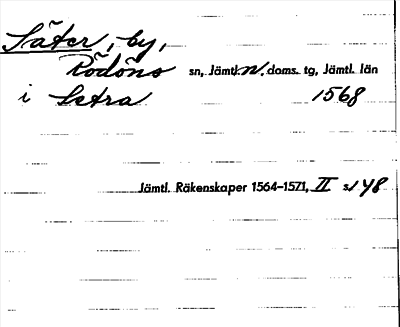 Säter, by,
Rödöns sn, Jämtl. n. doms. tg, Jämtl. län
i Setra 1568
Jämtl. Räkenskaper 1564-1571, II s. 148